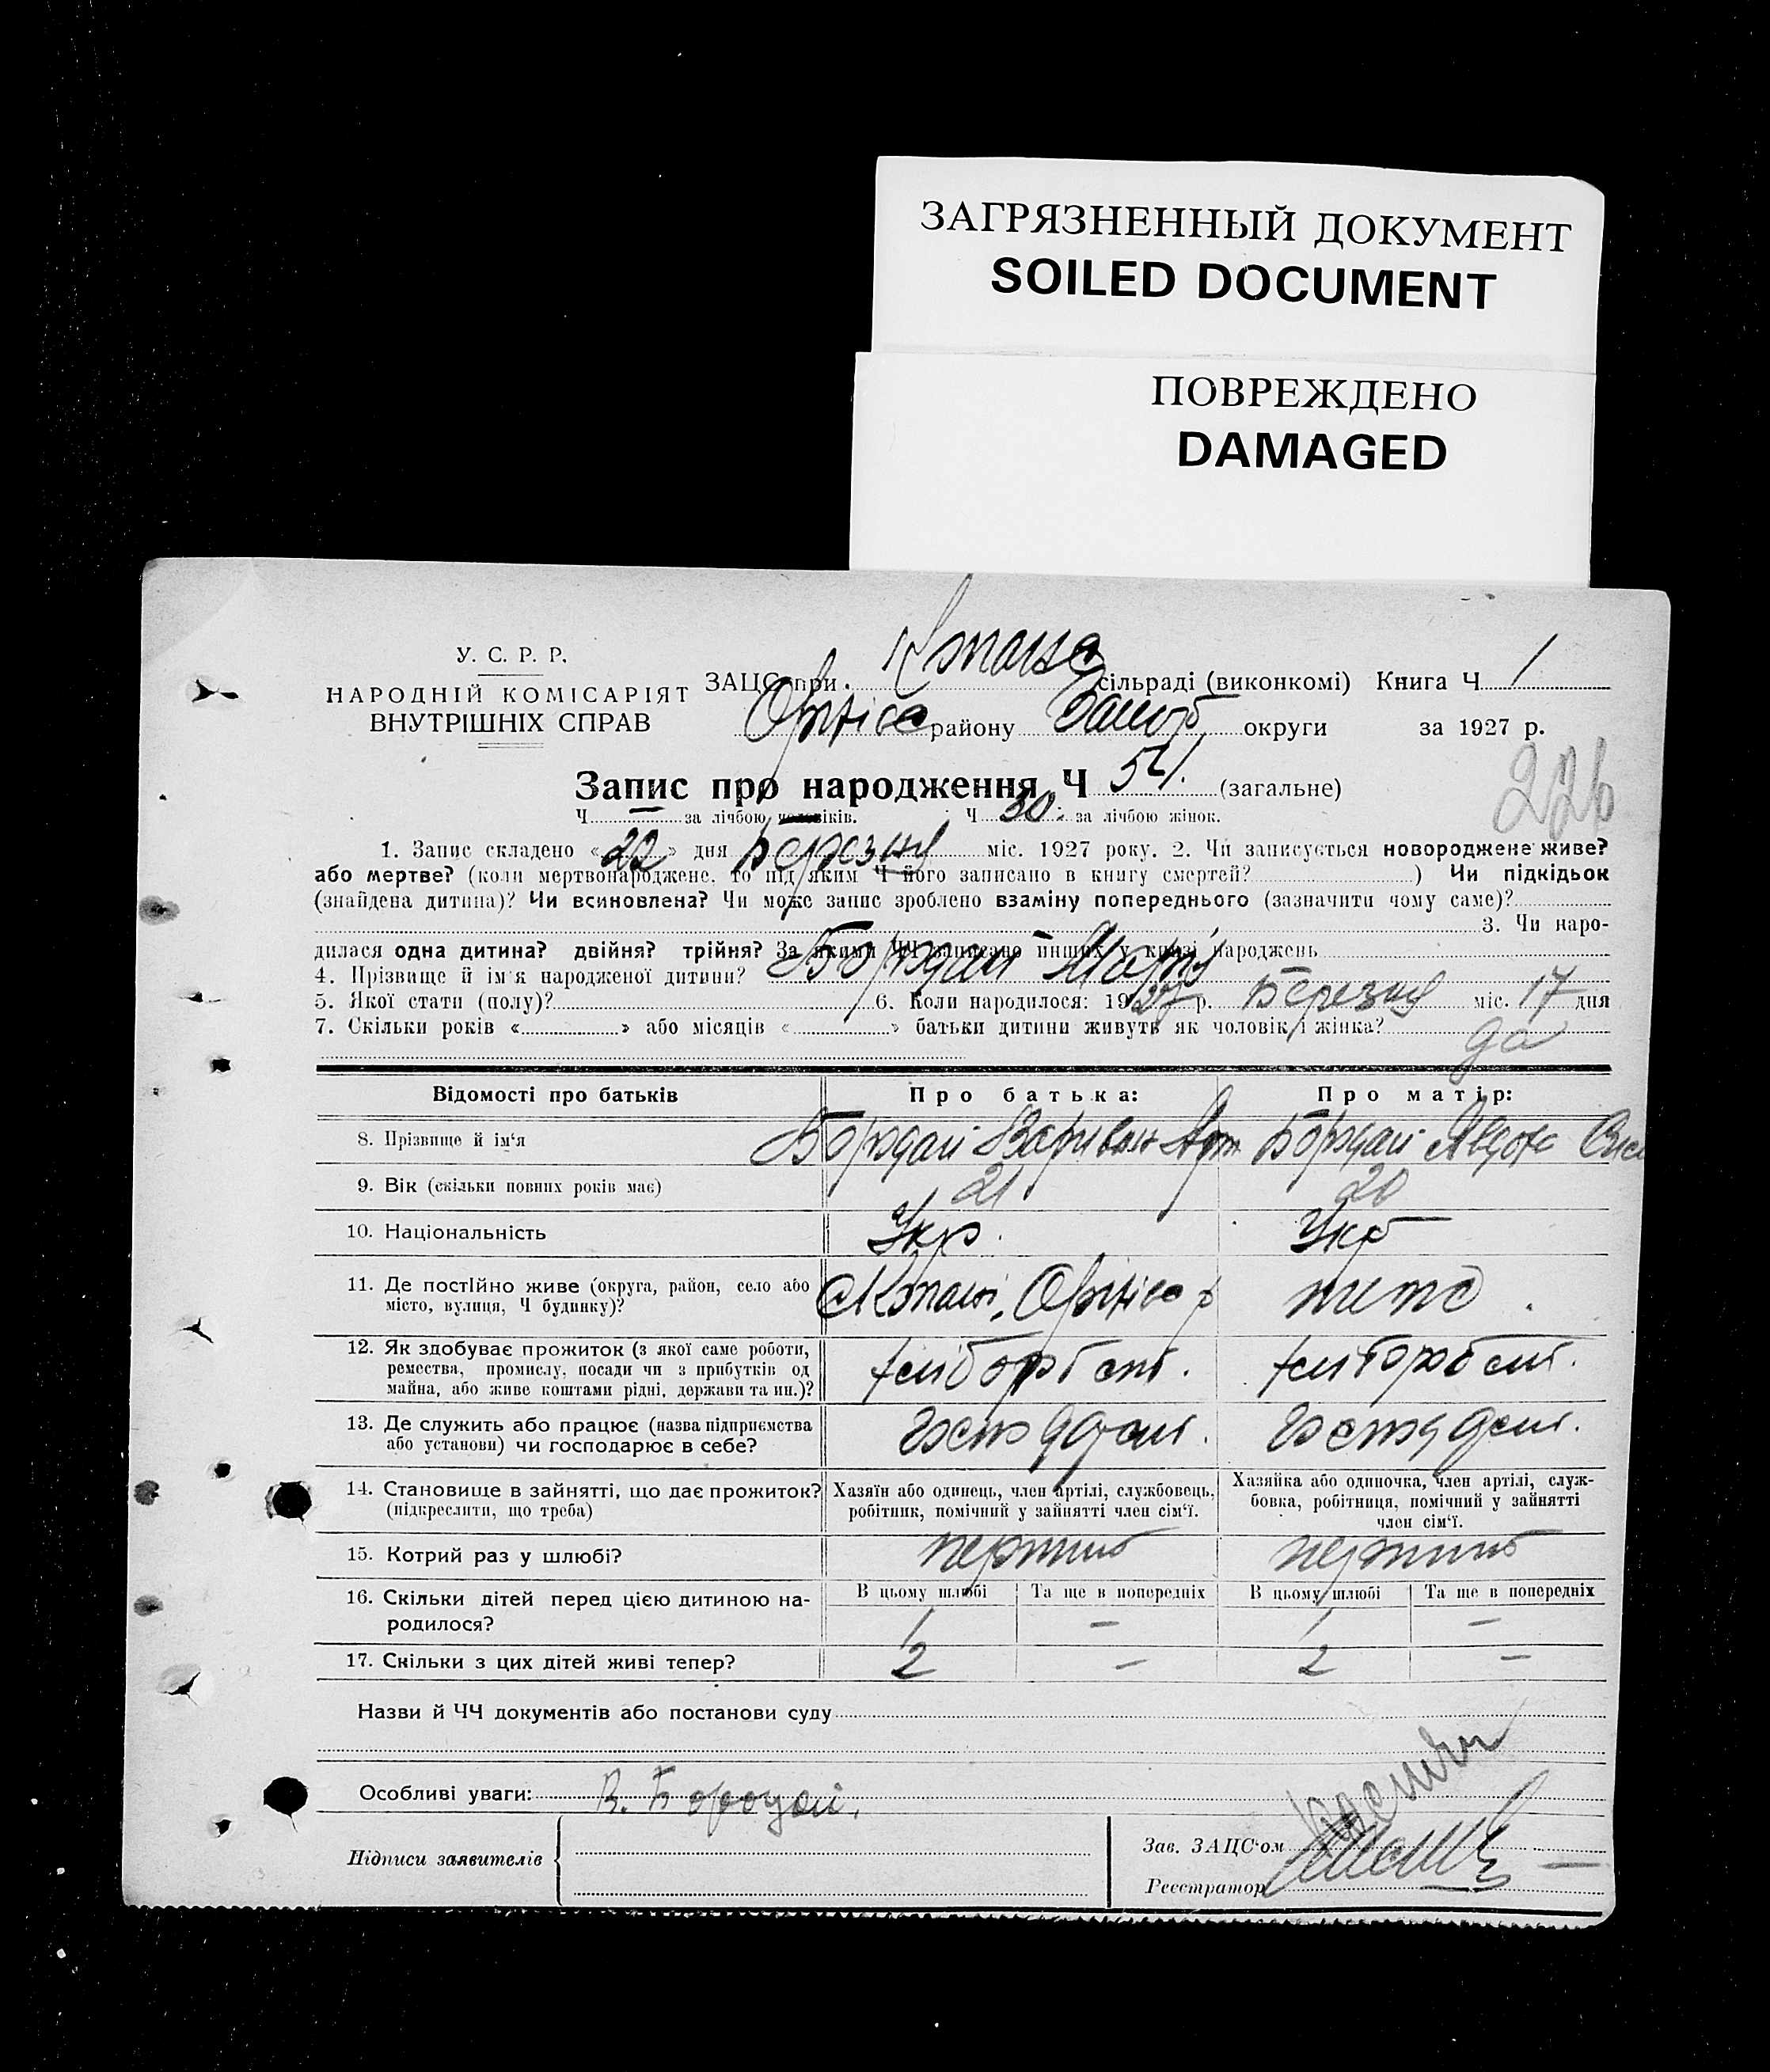 ЗАГРЯЗНЕННЫЙ ДОКУМЕНТ
SOILED DOCUMENT
ПОВРЕЖДЕНО
DAMAGED
У. С. Р. Р.
НАРОДНІЙ КОМІСАРІЯТ
ВНУТРІШНІХ СПРАВ
ЗАЦС при сільраді (виконкомі) Книга Ч 1
району округи за 1927 р.
Запис про народження Ч 54. (загальне)
226
Ч — за лічбою чоловіків. Ч 30. за лічбою жінок.
1. Запис складено «22» дня Березня міс. 1927 року. 2. Чи записується новороджене живе?
або мертве? (коли мертвонароджене, то під яким Ч його записано в книгу смертей? ) Чи підкідьок
(знайдена дитина)? Чи всиновлена? Чи може запис зроблено взаміну попереднього (зазначити чому саме)?
3. Чи наро-
дилася одна дитина? двійня? трійня? За якими ЧЧ записано инших у книзі народжень
4. Прізвище й ім'я народженої дитини? Мар
5. Якої стати (полу)? 6. Коли народилося: 1927 р. Березня міс. 17 дня
7. Скільки років « » або місяців « » батьки дитини живуть як чоловік і жінка? да
Відомості про батьків
Про батька:
Про матір:
8. Прізвище й ім'я
9. Вік (скільки повних років має) 21 20
10. Національність Укр. Укр
11. Де постійно живе (округа, район, село або
місто, вулиця, Ч будинку)?
12. Як здобуває прожиток (з якої саме роботи,
ремества, промислу, посади чи з прибутків од
майна, або живе коштами рідні, держави та ин.)?
хлібороб хлібороб
13. Де служить або працює (назва підприємства
або установи) чи господарює в себе?
14. Становище в зайнятті, що дає прожиток?
(підкреслити, що треба)
Хазяїн або одинець, член артілі, службовець,
робітник, помічний у зайнятті член сім'ї.
Хазяйка або одиночка, член артілі, служ-
бовка, робітниця, помічний у зайнятті
член сім'ї.
15. Котрий раз у шлюбі?
16. Скільки дітей перед цією дитиною на-
родилося?
В цьому шлюбі Та ще в попередніх В цьому шлюбі Та ще в попередніх
1 — 1 —
17. Скільки з цих дітей живі тепер? 2 — 2 —
Назви й ЧЧ документів або постанови суду
Особливі уваги:
Підписи заявителів
Зав. ЗАЦС'ом
Реєстратор